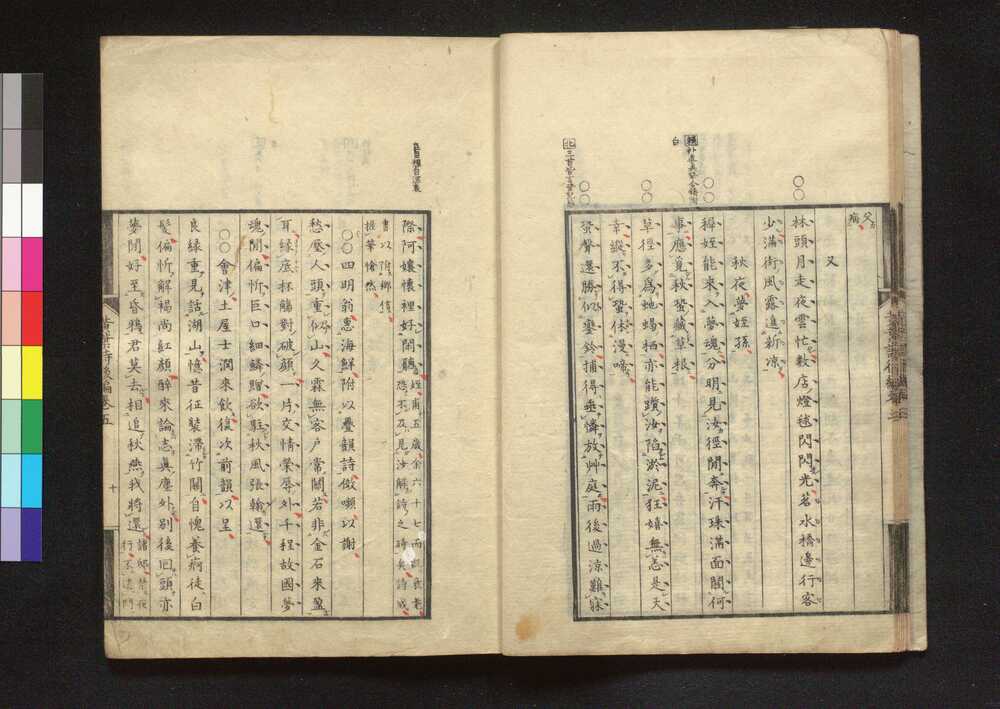 又
林頭月走夜雲忙數店燈毬閃閃光茗水橋邊行客
少滿街風露進新凉
秋夜夢姪孫
稺姪能來入夢魂分明見汝徑閒奔汗珠滿面關何
事應覓秋蛩藏草根
草徑多爲虵蝎栖亦能躓汝陷淤泥狂嬉無恙是天
幸縱不得蛩休漫啼
蛩聲還勝似鑾鈴捕得垂憐放艸庭雨後過涼難寐
際阿孃懷裡好閑聽
書以附鄉信
援筆愴然
○○四明翁惠海鮮附以疊韻詩傚嚬以謝
愁壓人頭重似山久霖無客戶常關若非金石來盈
耳緣底杯觴對破顏一片交情榮辱外千程故國夢
魂閒偏忻巨口細鱗贈欲駐秋風張翰還
○○會津土屋士潤來飲復次前韻以呈
良緣重見話湖山憶昔征裝滯竹關自愧養痾徒白
髮偏忻解褐尚紅顏醉來論志眞塵外別後回頭亦
夢閒好至昏鴉君莫去相追秋燕我將還
詩後編卷五
十